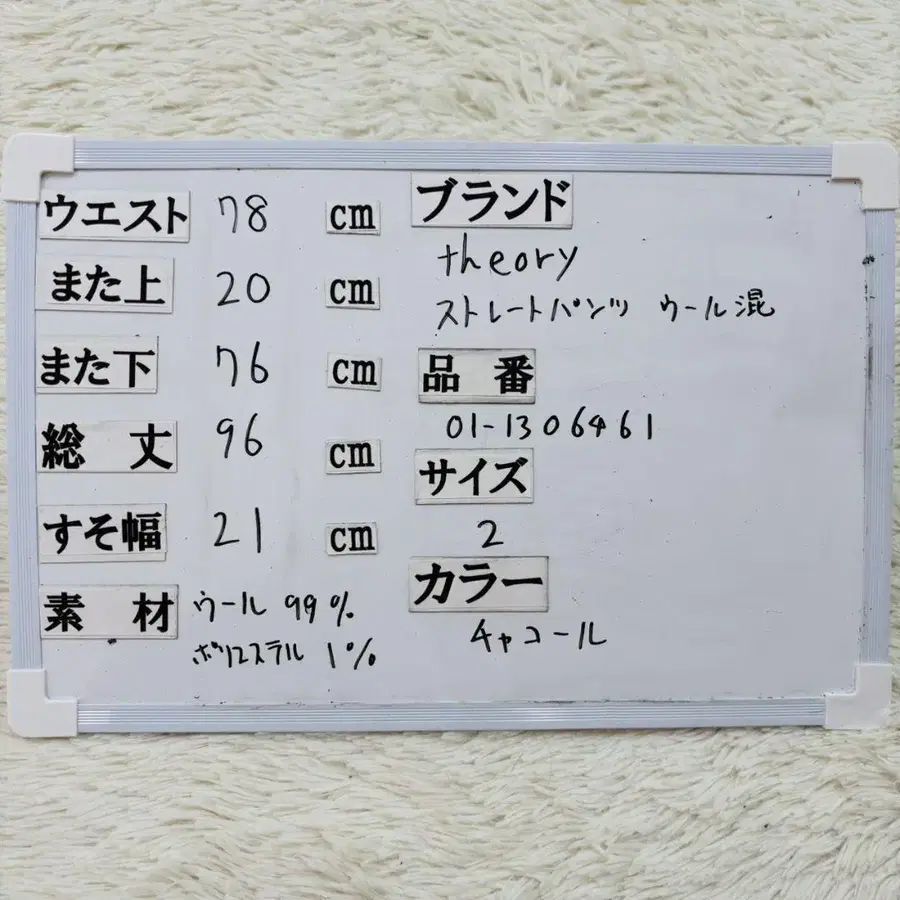 ウエスト 78 cm
また上 20 cm
また下 76 cm
総丈 96 cm
すそ幅 21 cm
素材 ウール 99%
ポリエステル 1%
ブランド
theory
ストレートパンツ ウール混
品番
01-1306461
サイズ
2
カラー
チャコール